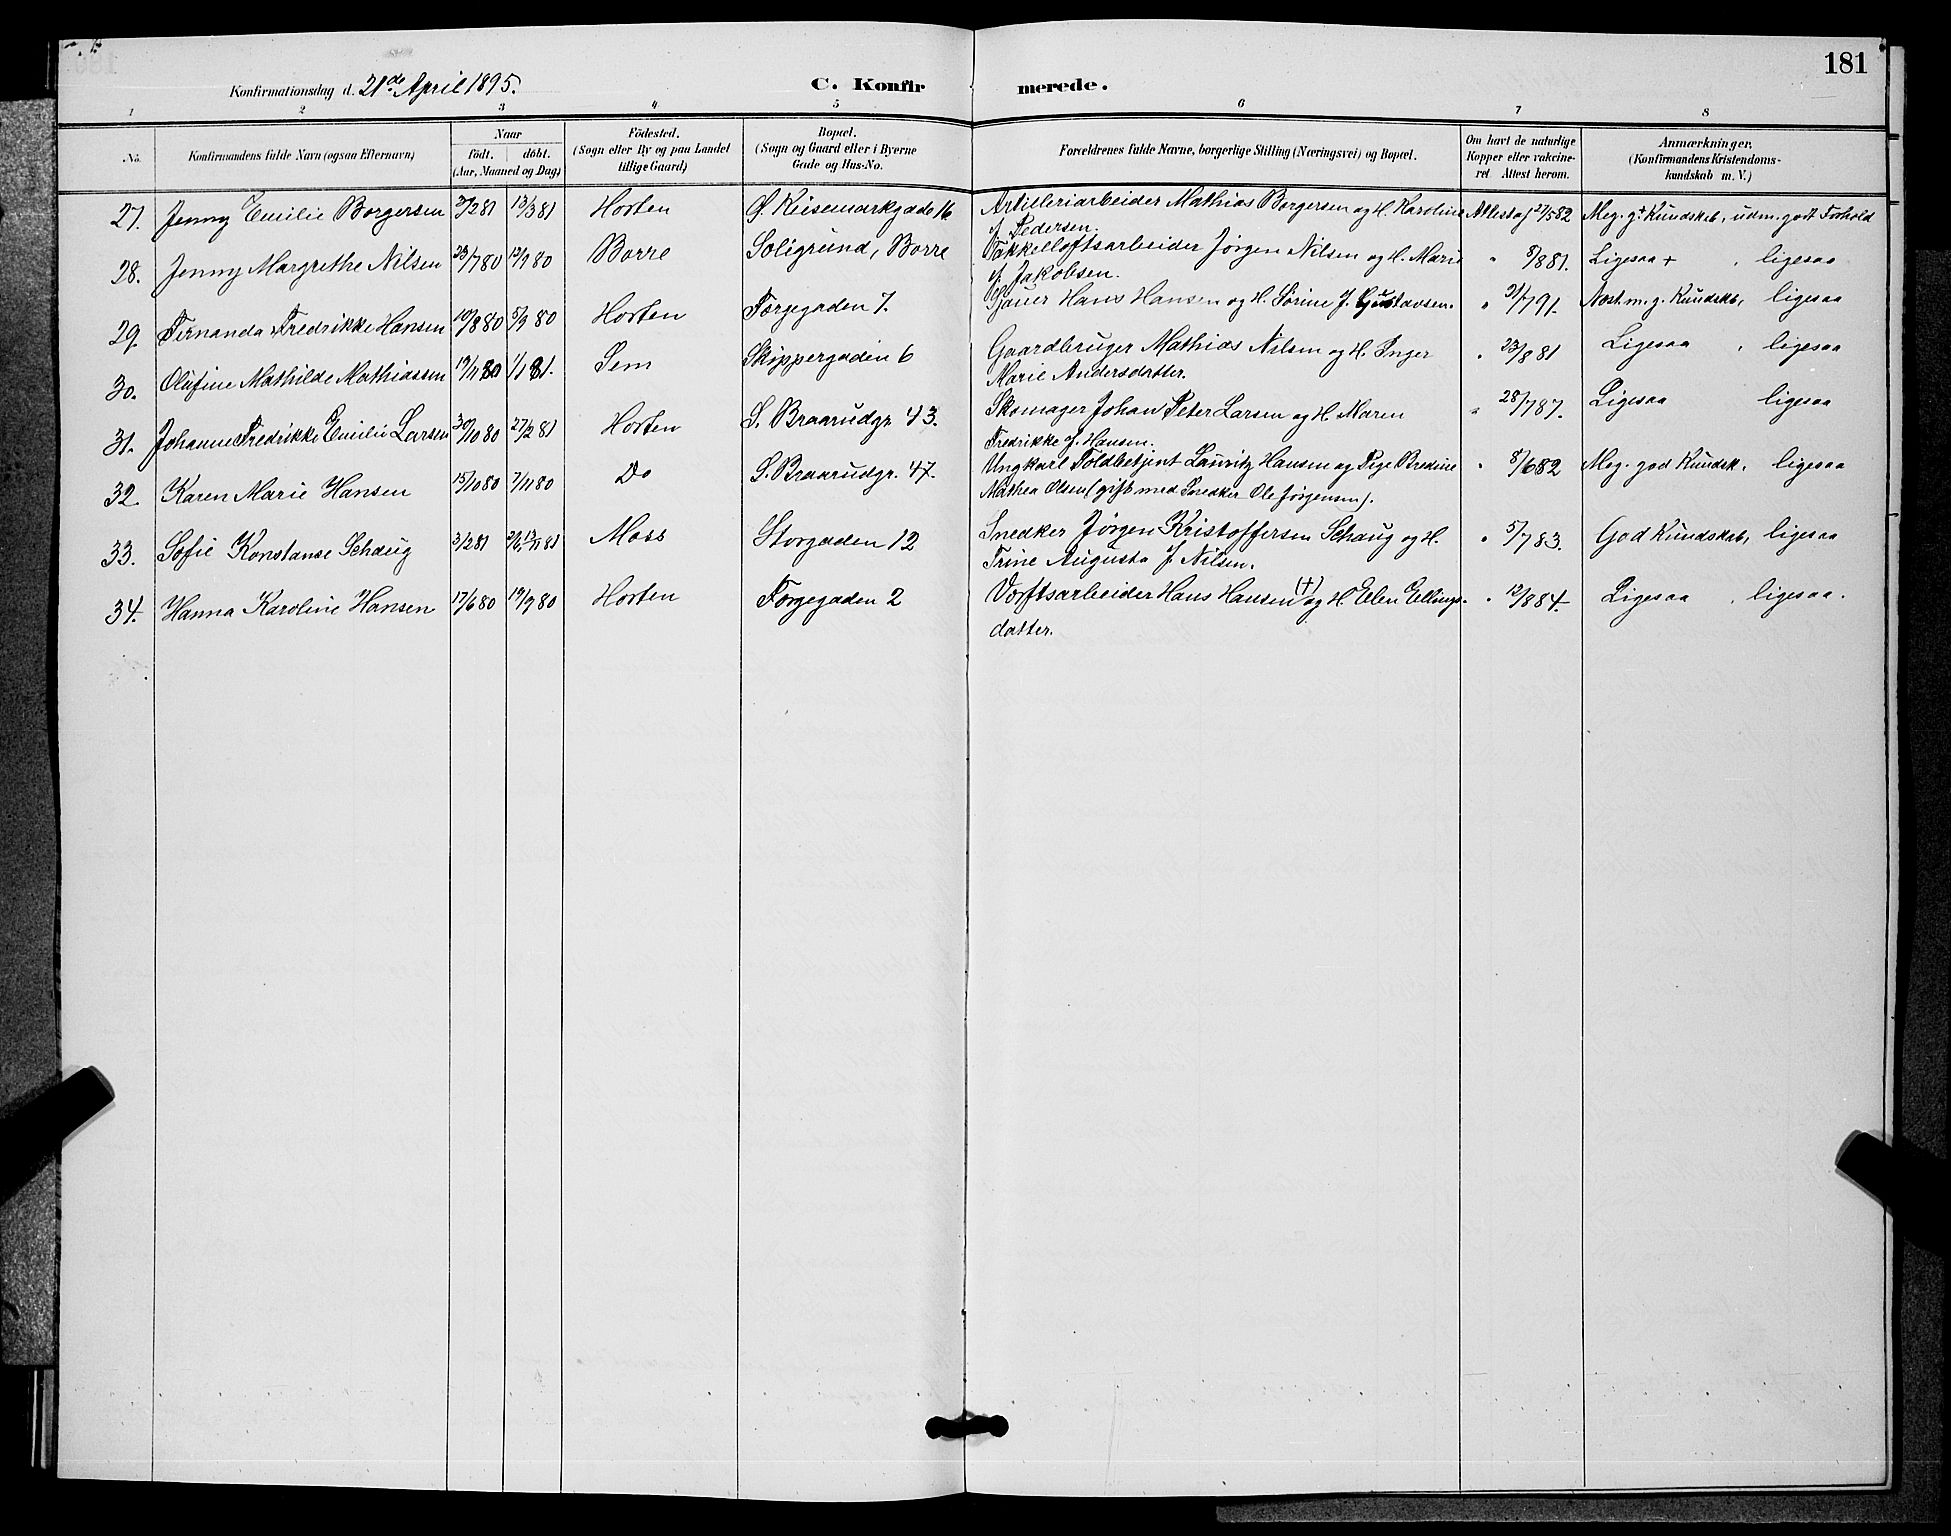 181
Konfirmationsdag d. 21de April 1895.
C. Konfir merede.
1 2 3 4 5 6 7 8
No. Konfirmandens fulde Navn (ogsaa Efternavn) Naar født. døbt. (Aar, Maaned og Dag) Fødested. (Sogn eller By og paa Landet tillige Gaard) Bopæl. (Sogn og Gaard eller i Byerne Gade og Hus-No. Forældrenes fulde Navne, borgerlige Stilling (Næringsvei) og Bopæl. Om havt de naturlige Kopper eller vakcineret. Attest herom. Anmærkninger. (Konfirmandens Kristendomskundskab m. V.)
27. Jenny Emilie Borgersen 13/3 81 Horten Ø. Keisemarkgade 16 Artilleriarbeider Mathias Borgersen og H. Karoline Attest af 27/5 82 Meg. gt Kundskab, udm. godt Forhold
f. Pedersen.
28. Jenny Margrethe Nilsen 23/7 80 12/9 80 Borre Soligrund, Borre Takkelloftsarbeider Jørgen Nilsen og H. Marie " 5/8 81. Ligesaa + , ligesaa
f. Jakobsen.
29. Fernanda Fredrikke Hansen 10/8 80 5/9 80 Horten Torgegaden 7. Sjauer Hans Hansen og H. Sørine f. Gustavsen. " 21/7 91. Næst. m. g. Kundskb, ligesaa
30. Olufine Mathilde Mathiassen 19/11 80 1/1 81. Sem Skippergaden 6 Gaardbruger Mathias Nilsen og H. Inger " 23/8 81 Ligesaa , ligesaa
Marie Andersdatter.
31. Johanne Fredrikke Emilie Larsen 30/10 80 27/2 81 Horten S. Braarudgr. 43. Skomager Johan Peter Larsen og H. Maren " 28/7 87. Ligesaa ligesaa
Fredrikke f. Hansen.
32. Karen Marie Hansen 15/10 80 7/11 80 Do S. Braarudgr. 47. Ungkarl Toldbetjent Lauritz Hansen og Pige Bredine " 8/6 82 Meg. god Kundsk. ligesaa
Mathea Olsen (gift med Snedker Ole Jørgensen).
33. Sofie Konstanse Schaug 3/2 81 Moss Storgaden 12 Snedker Jørgen Kristoffersen Schaug og H. " 5/7 83. God Kundskab, ligesaa
Trine Augusta f. Nilsen.
34. Hanna Karoline Hansen 17/6 80 19/9 80 Horten Torgegaden 2 Værftsarbeider Hans Hansen (+) og H. Elen Ellings- " 12/8 84. Ligesaa , ligesaa.
datter.